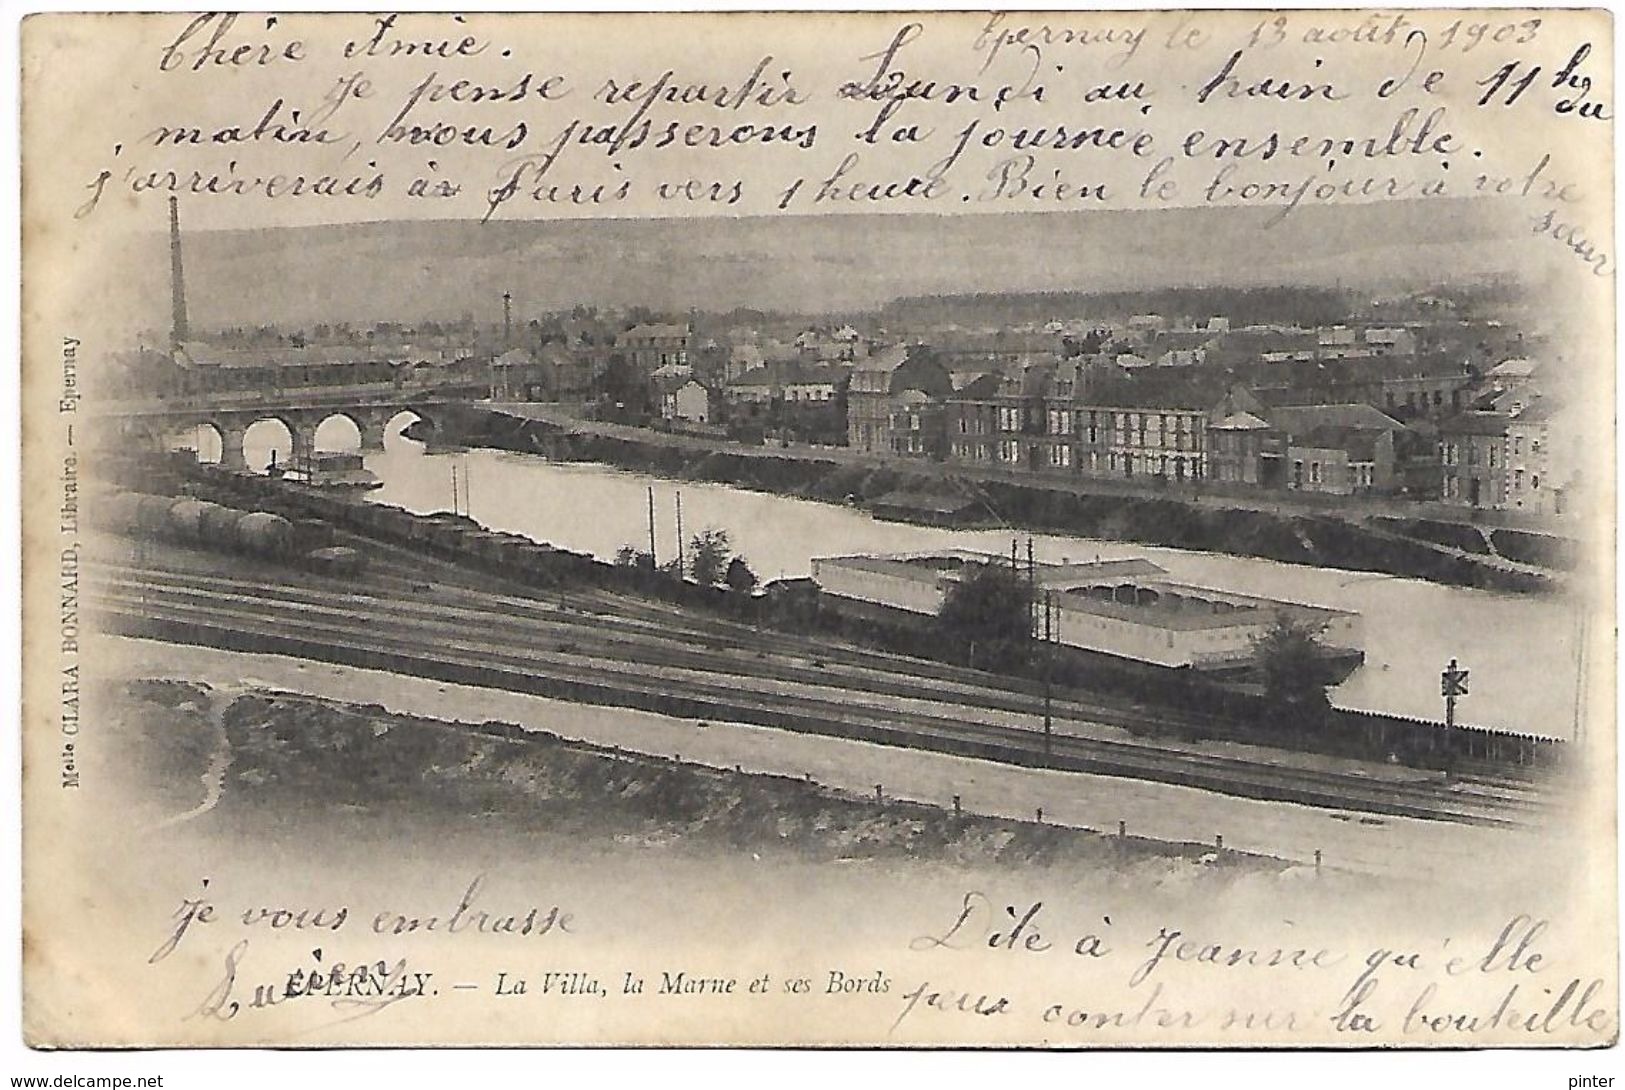 Epernay le 13 août 1903
Chère Amie.
Je pense repartir Lundi au train de 11 h du
matin, nous passerons la journée ensemble.
j'arriverais à Paris vers 1 heure. Bien le bonjour à votre
sœur
Melle CLARA BONNARD, Libraire. — Epernay
je vous embrasse
Lucien
Dite à Jeanne qu'elle
peux conter sur la bouteille
EPERNAY. — La Villa, la Marne et ses Bords
www.delcampe.net
pinter